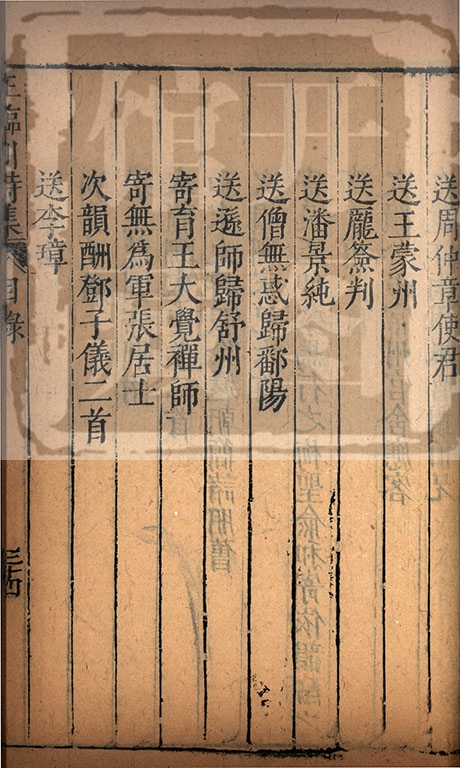 送周仲章使君
送王蒙州
送龐簽判
送潘景純
送僧無惑歸鄱陽
送遜師歸舒州
寄育王大覺禪師
寄無爲軍張居士
次韻酬鄧子儀二首
送李璋
王臨川詩集 目錄 三十四